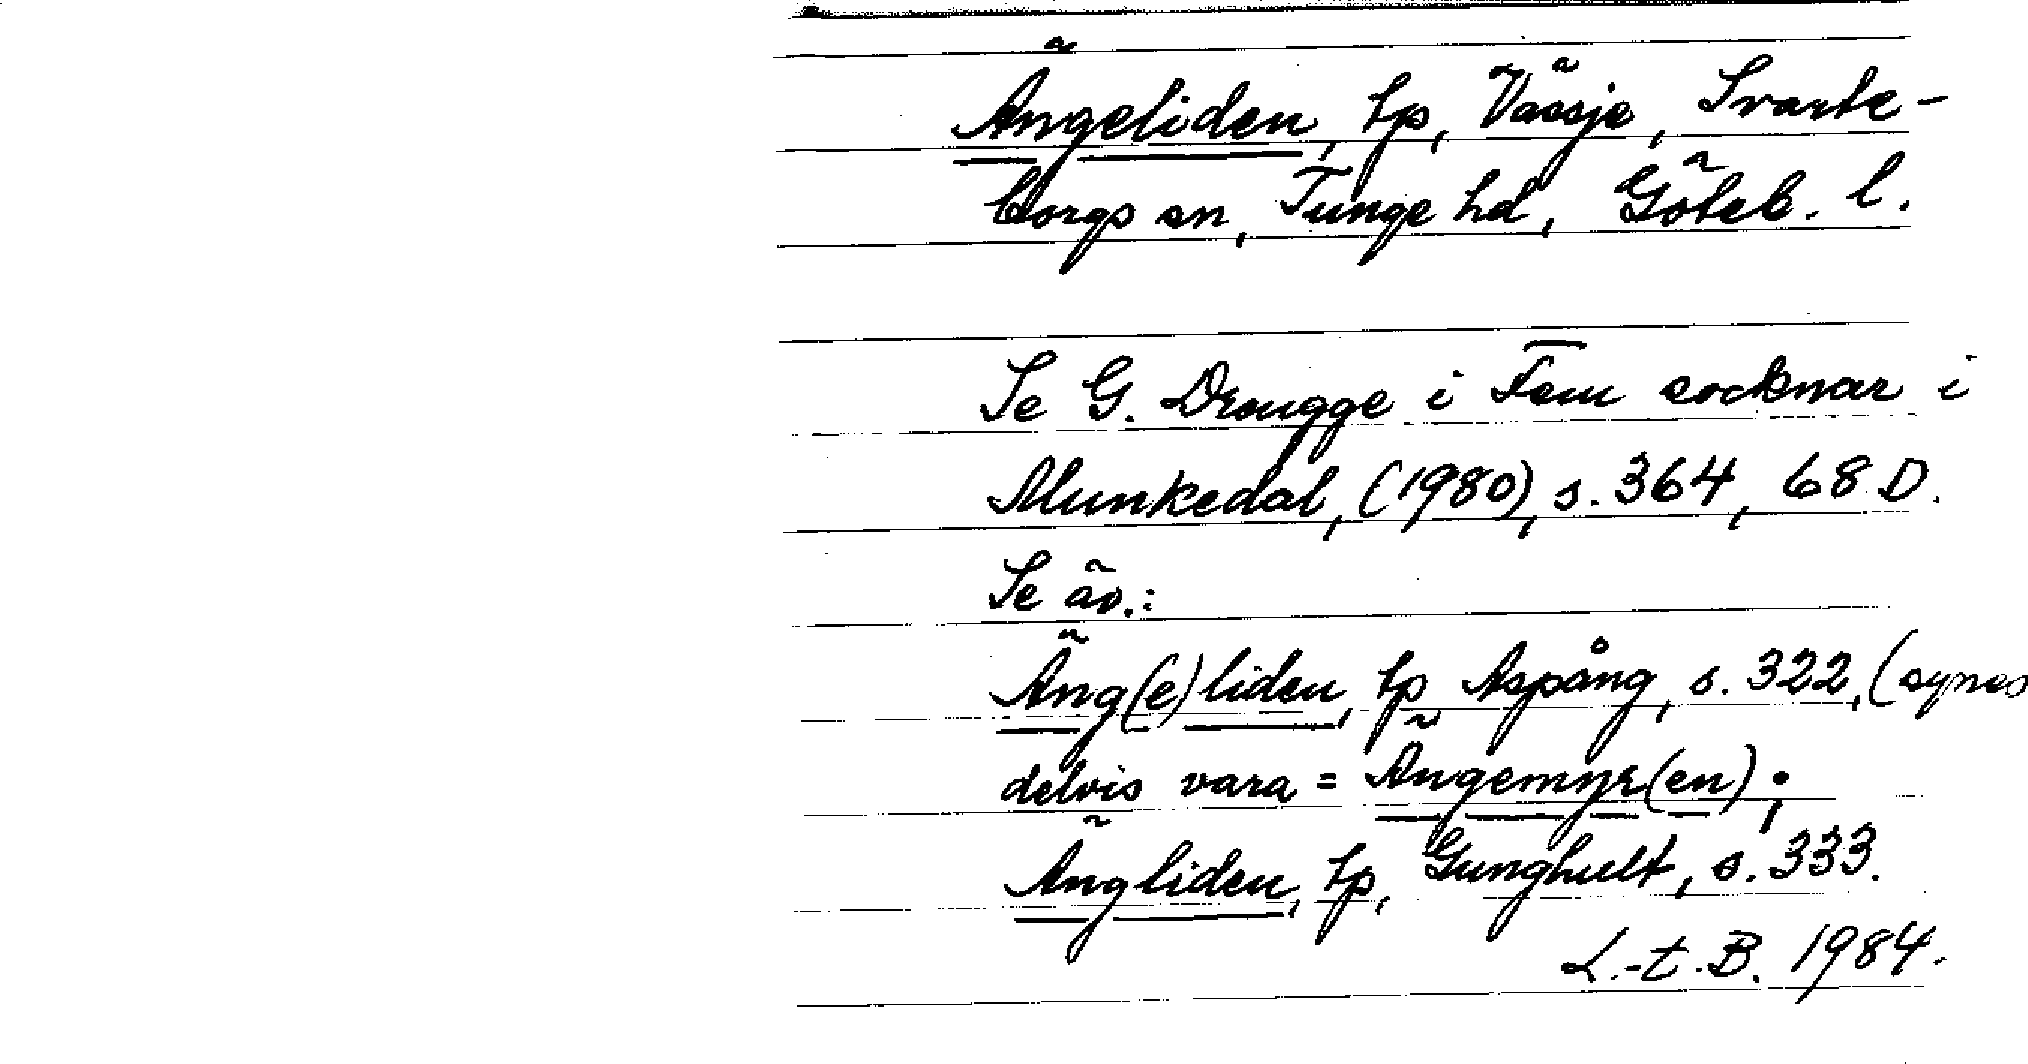 Ängeliden, tp, Vässje, Svarte-
borgs sn, Tunge hd, Göteb. l.
Se G. Drougge i Fem socknar i
Munkedal, (1980), s. 364, 68 D.
Se äv.:
Äng(e)liden, tp Aspång, s. 322, (synes
delvis vara = Ängemyr(en);
Ängliden, tp, Gunghult, s. 333.
L.-t. B. 1984.